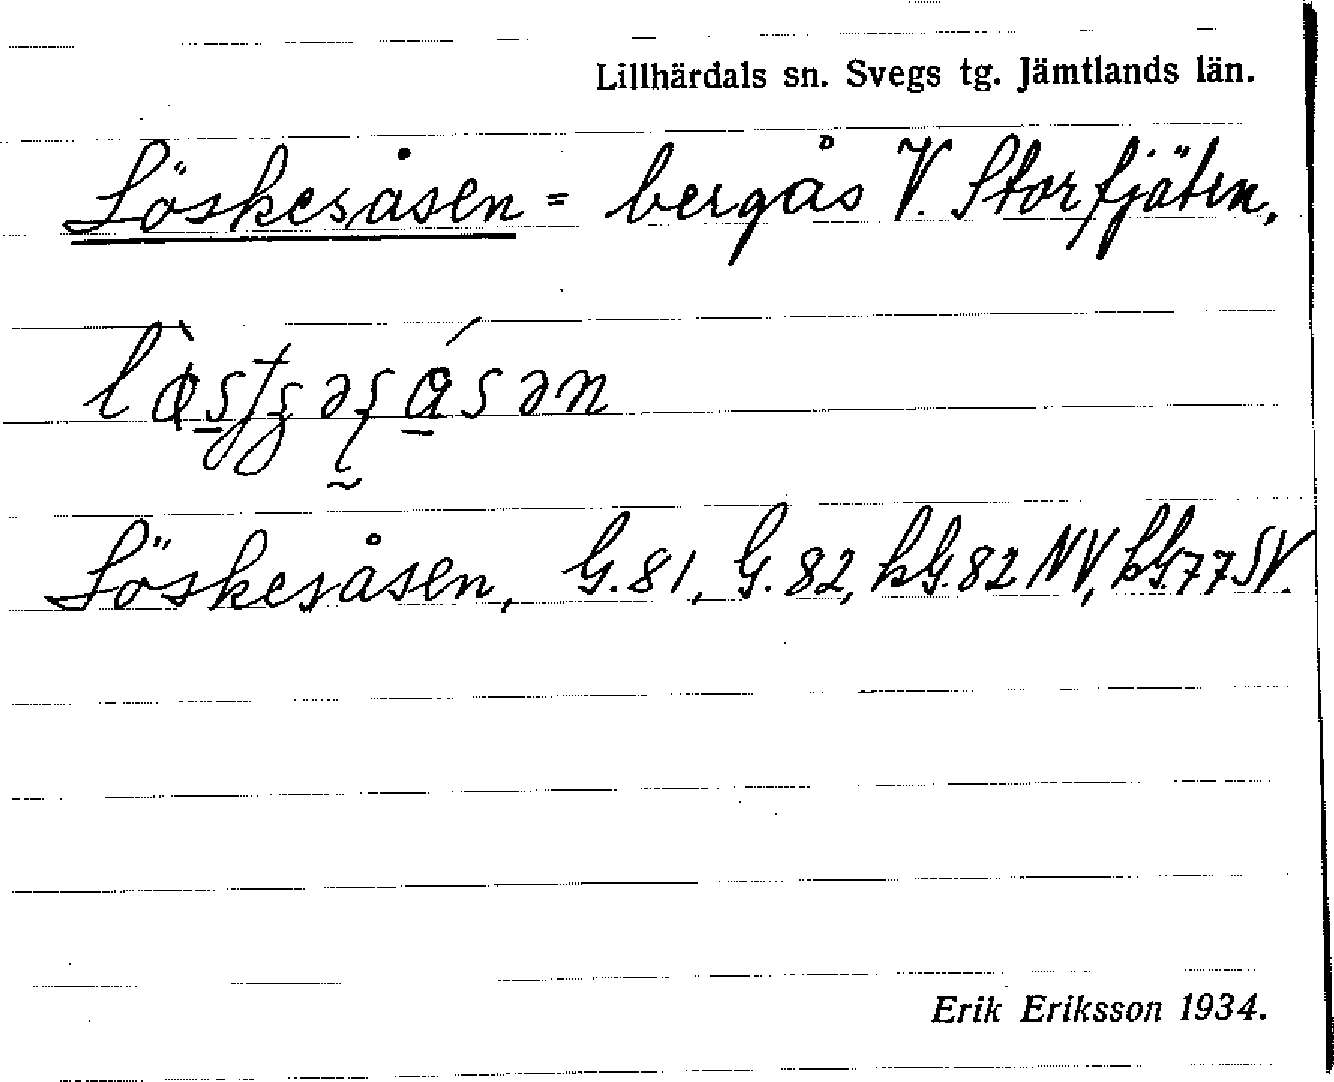 Lillhärdals sn. Svegs tg. Jämtlands län.
Löskesåsen = bergås V. Storfjäten.
Löskesåsen, G. 81, G. 82, kG. 82 NV, kG. 77 SV.
Erik Eriksson 1934.